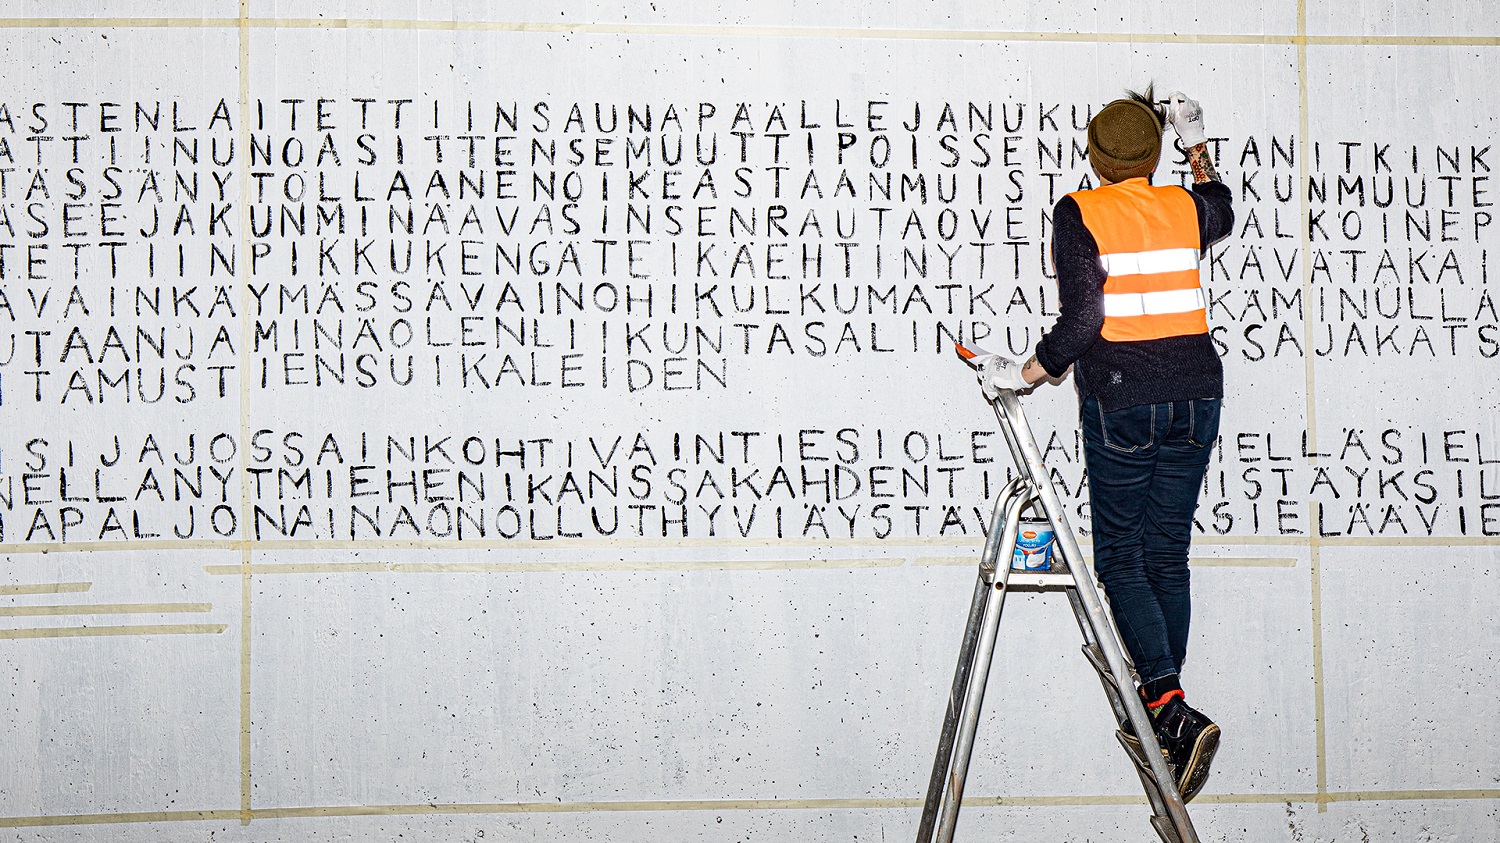 ASTENLAITETTIINSAUNAPÄÄLLEJANUKU
ATTIINUNOASITTENSEMUUTTIPOISSENM STANITKINK
TÄSSÄNYTOLLAANENOIKEASTAANMUISTA KUNMUUTE
ASEEJAKUNMINÄAVASINSENRAUTAOVEN ALKOINEP
TETTIINPIKKUKENGÄTEIKÄEHTINYTTU KÄVÄTAKAI
ÄVAINKÄYMÄSSÄVAINOHIKULKUMATKAL KÄMINULLA
UTAANJAMINÄOLENLIIKUNTASALINPU SSAJAKATS
ITAMUSTIENSUIKALEIDEN
SIJAJOSSAINKOHTIVAINTIESIOLE IELLÄSIEL
NELLANYTMIEHENIKANSSAKAHDENTI MISTÄYKSIL
APALJONAINAONOLLUTHYVIÄYSTÄV KSIELÄÄVIE